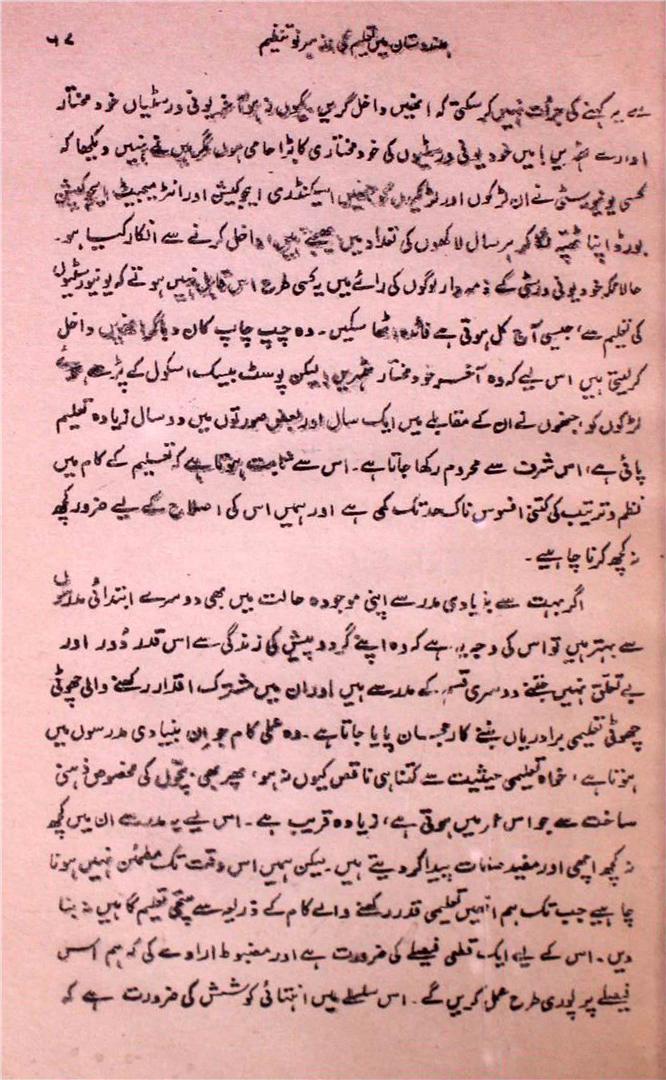 ہندوستان میں تعلیم کی از سرِ نو تنظیم ۶۷
سے یہ کہنے کی جرأت نہیں کر سکتی کہ انھیں داخل کریں۔ کیوں نہ ہو آخر یونی ورسٹیاں خود مختار
ادارے ٹھہریں! میں خود یونی ورسٹیوں کی خود مختاری کا بڑا حامی ہوں مگر میں نے نہیں دیکھا کہ
کسی یونیورسٹی نے ان لڑکوں اور لڑکیوں کو جنھیں سیکنڈری ایجوکیشن اور انٹرمیجیٹ ایجوکیشن
بورڈ اپنا ٹھپّہ لگا کر ہر سال لاکھوں کی تعداد میں بھیجتے ہیں، داخل کرنے سے انکار کیا ہو۔
حالانکہ خود یونی ورسٹی کے ذمہ دار لوگوں کی رائے میں یہ کسی طرح اس قابل نہیں ہوتے کہ یونیورسٹیوں
کی تعلیم سے، جیسی آج کل ہوتی ہے فائدہ اٹھا سکیں۔ وہ چپ چاپ کان دبا کر انھیں داخل
کر لیتی ہیں اس لیے کہ وہ آخر خود مختار ٹھہریں! لیکن پوسٹ بیسک اسکول کے پڑھے ہوئے
لڑکوں کو، جنھوں نے ان کے مقابلے میں ایک سال اور بعض صورتوں میں دو سال زیادہ تعلیم
پائی ہے، اس شرف سے محروم رکھا جاتا ہے۔ اس سے ثابت ہوتا ہے کہ تعلیم کے کام میں
نظم و ترتیب کی کتنی افسوس ناک حد تک کمی ہے اور ہمیں اس کی اصلاح کے لیے ضرور کچھ
نہ کچھ کرنا چاہیے۔
اگر بہت سے بنیادی مدرسے اپنی موجودہ حالت میں بھی دوسرے ابتدائی مدرسوں
سے بہتر ہیں تو اس کی وجہ یہ ہے کہ وہ اپنے گرد و پیش کی زندگی سے اس قدر دُور اور
بے تعلق نہیں جتنے دوسری قسم کے مدرسے ہیں اور ان میں مشترک اقدار رکھنے والی چھوٹی
چھوٹی تعلیمی برادریاں بننے کا رجحان پایا جاتا ہے۔ وہ عملی کام جو ان بنیادی مدرسوں میں
ہوتا ہے، خواہ تعلیمی حیثیت سے کتنا ہی ناقص کیوں نہ ہو، پھر بھی بچّوں کی مخصوص ذہنی
ساخت سے جو اس عمر میں ہوتی ہے، زیادہ قریب ہے۔ اس لیے یہ مدرسے ان میں کچھ
نہ کچھ اچھی اور مفید صفات پیدا کر دیتے ہیں۔ لیکن ہمیں اس وقت تک مطمئن نہیں ہونا
چاہیے جب تک ہم انہیں تعلیمی قدر رکھنے والے کام کے ذریعہ سے سچّی تعلیم گاہیں نہ بنا
دیں۔ اس کے لیے ایک قطعی فیصلے کی ضرورت ہے اور مضبوط ارادے کی کہ ہم اس
فیصلے پر پوری طرح عمل کریں گے۔ اس سلسلے میں انتہائی کوشش کی ضرورت ہے کہ